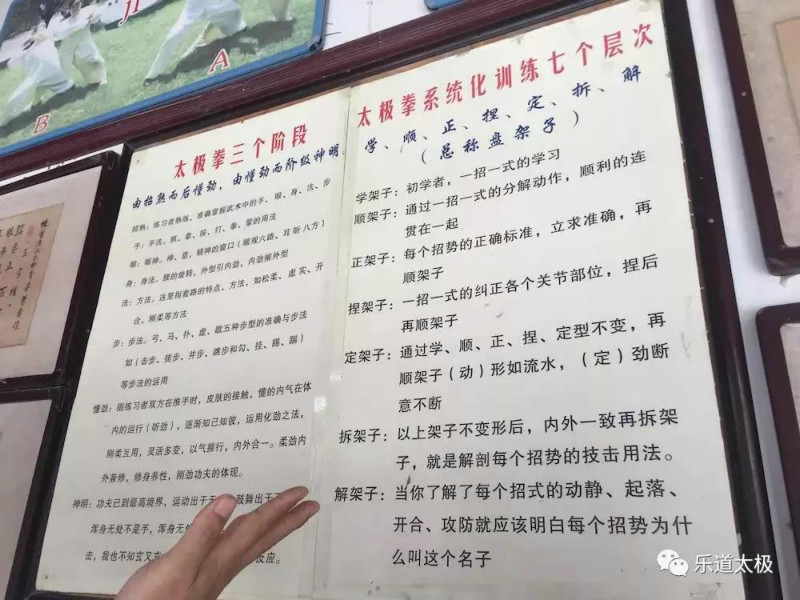 ji
A
B
太极拳三个阶段
由招熟而后懂劲，由懂劲而阶级神明。
招熟：练习者熟练、准确掌握武术中的手、眼、身、法、步
手：手法。抓、拿、按、打、拳、掌的用法
眼：眼神。神、意、精神的窗口（眼观六路、耳听八方）
身：身法。腰的旋转、外型引内劲、内劲催外型
法：方法。这里指套路的特点、方法，如松柔、虚实、开
合、刚柔等方法
步：步法。弓、马、扑、虚、歇五种步型的准确与步法
如（击步、接步、并步、跳步和勾、挂、踢、踹）
等步法的运用
懂劲：指练习者双方在推手时，皮肤的接触，懂的内气在体
内的运行（听劲），逐渐知己知彼，运用化劲之法，
刚柔互用，灵活多变，以气摧行，内外合一。柔劲内
外兼修，修身养性，刚劲功夫的体现。
神明：功夫已到最高境界，运动出于无
鼓舞出于不
浑身无处不是手，浑身无
击，我也不知玄又
反应。
太极拳系统化训练七个层次
学、顺、正、捏、定、拆、解
（总称盘架子）
学架子：初学者，一招一式的学习
顺架子：通过一招一式的分解动作，顺利的连
贯在一起
正架子：每个招势的正确标准，立求准确，再
顺架子
捏架子：一招一式的纠正各个关节部位，捏后
再顺架子
定架子：通过学、顺、正、捏、定型不变，再
顺架子（动）形如流水，（定）劲断
意不断
拆架子：以上架子不变形后，内外一致再拆架
子，就是解剖每个招势的技击用法。
解架子：当你了解了每个招式的动静、起落、
开合、攻防就应该明白每个招势为什
么叫这个名子
乐道太极